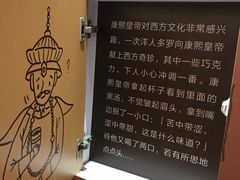 康熙皇帝對西方文化非常感興
趣，一次洋人多羅向康熙皇帝
獻上西方奇珍，其中一些巧克
力。下人小心沖調一番。康
熙皇帝拿起杯子看到里面的
黑湯，不覺皱起眉头，拿到嘴
边抿了一小口：「苦中带涩、
涩中带甜，这是什么味道？」
待他又喝了两口，若有所思地
点点头……